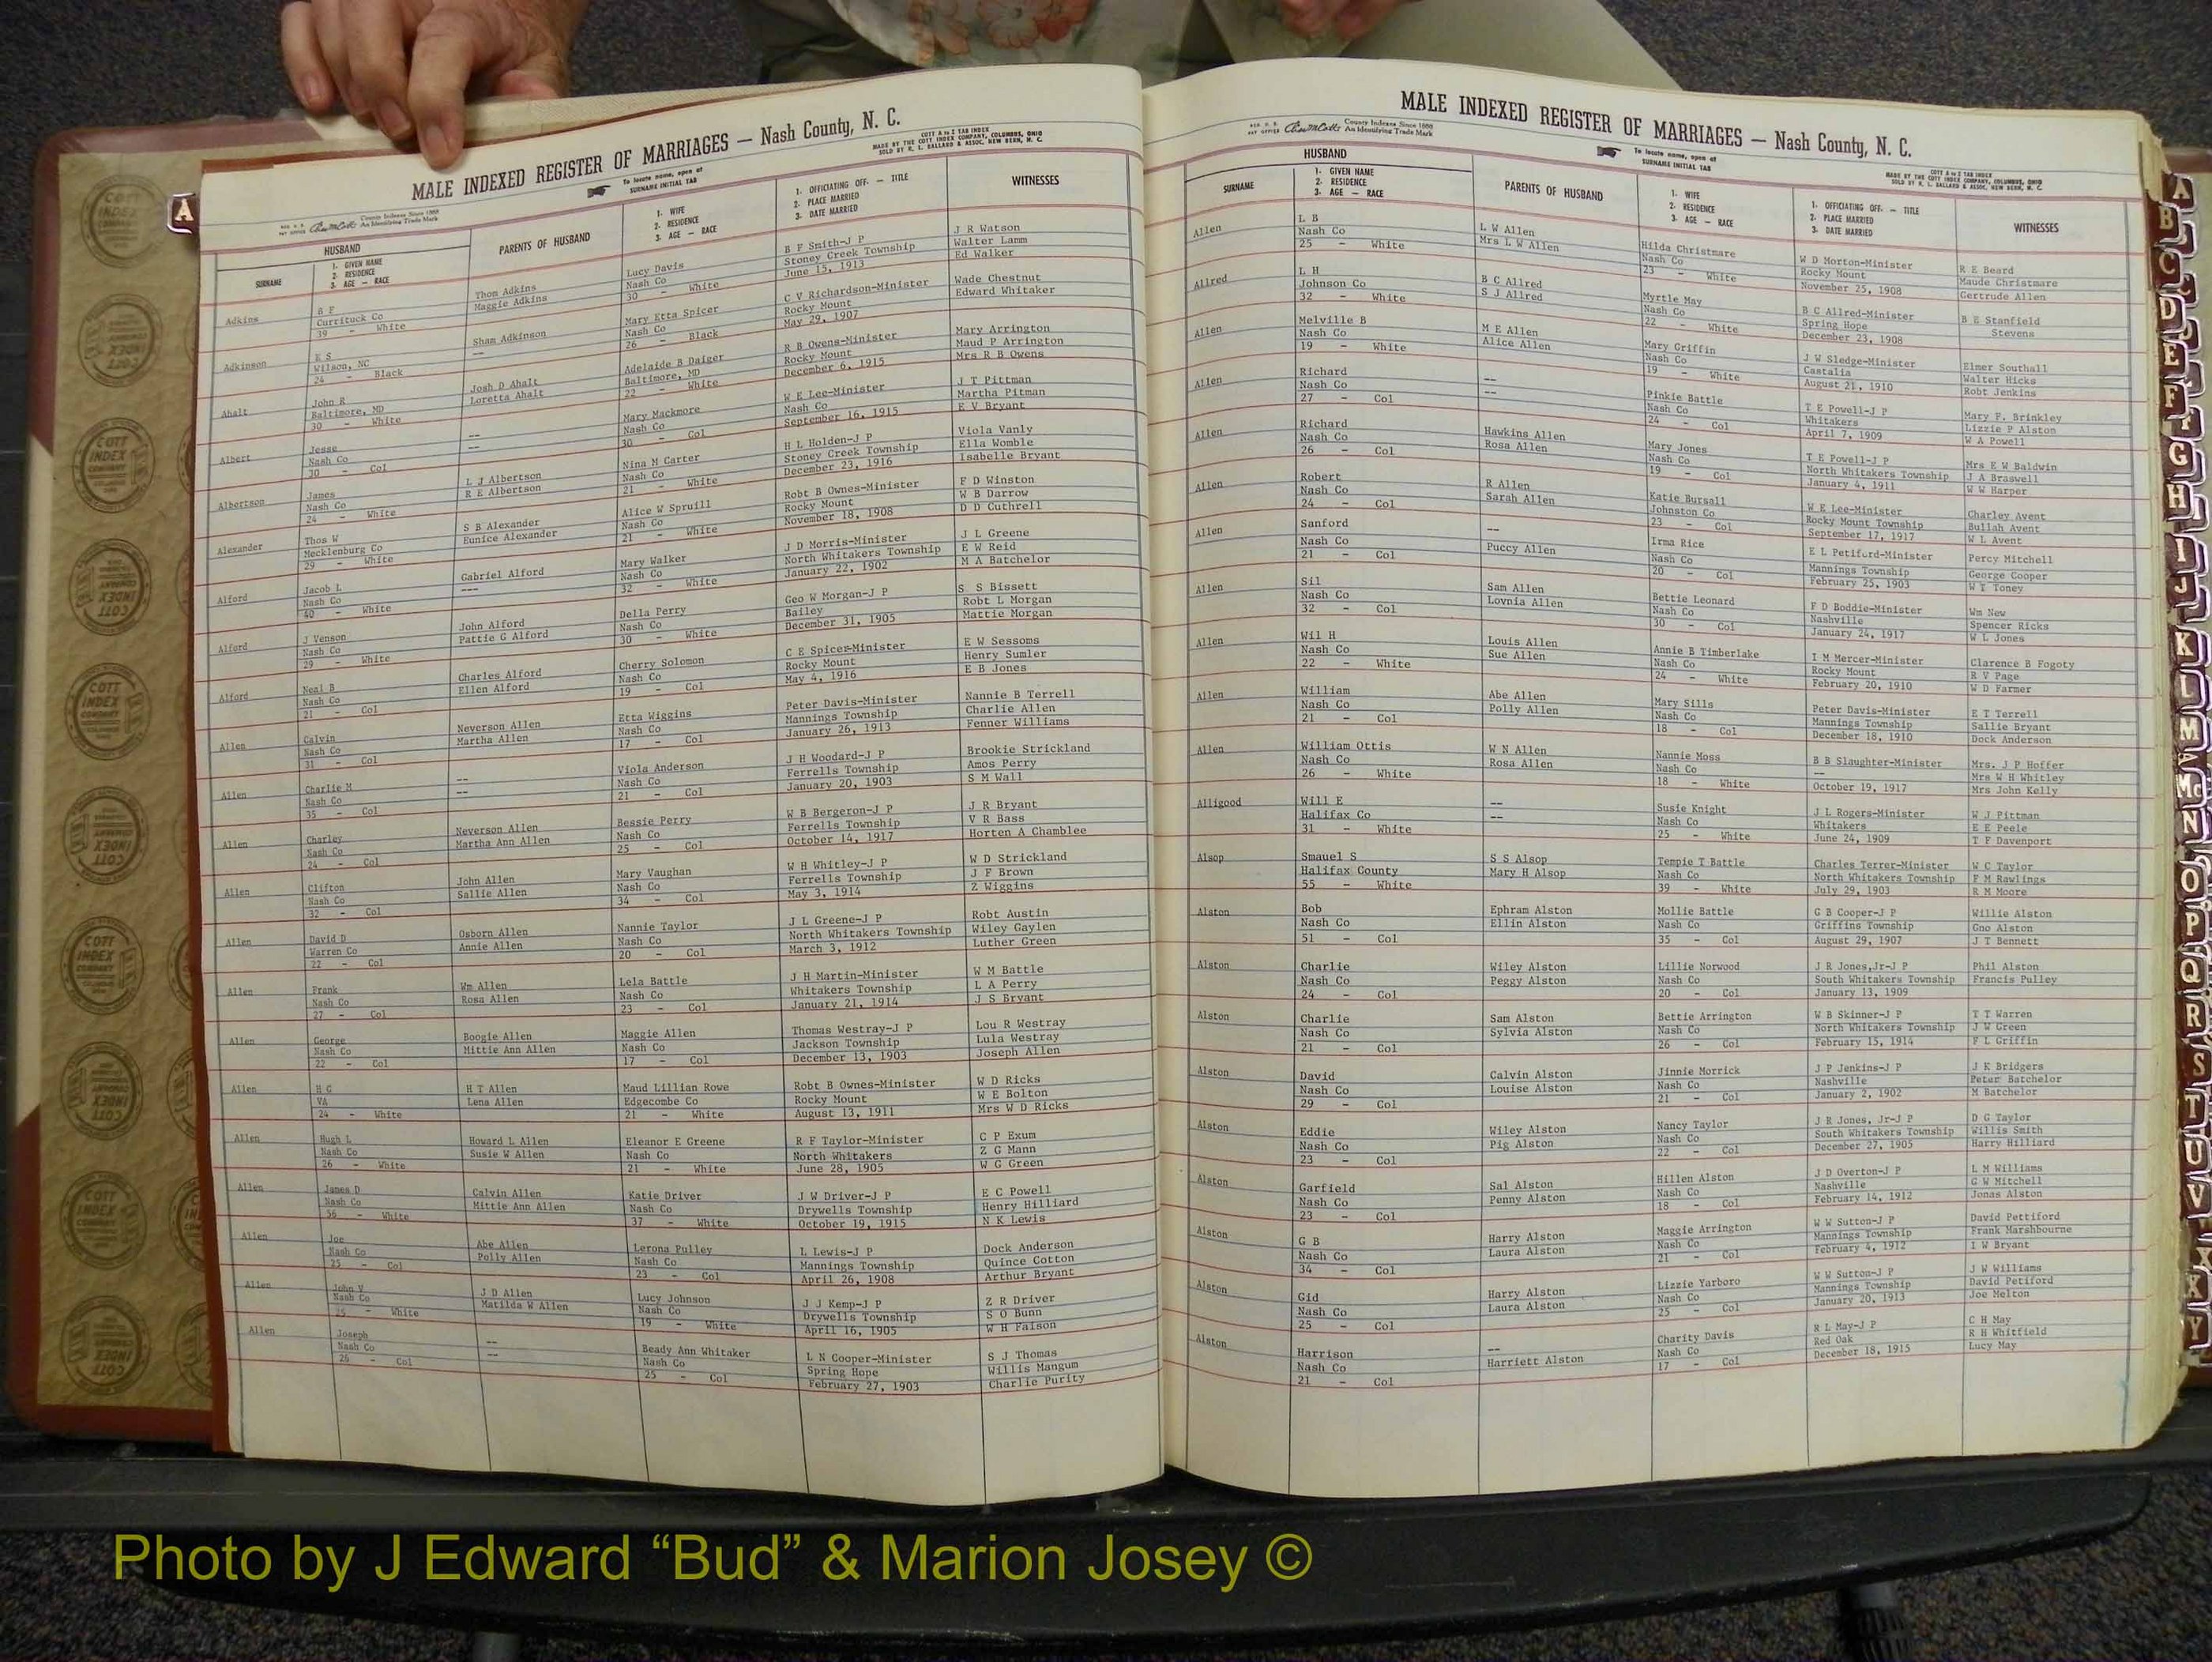 MALE INDEXED REGISTER OF MARRIAGES — Nash County, N. C.
County Indexes Since 1888
An Identifying Trade Mark
To locate name, open at
SURNAME INITIAL TAB
COTT A to Z TAB INDEX
MADE BY THE COTT INDEX COMPANY, COLUMBUS, OHIO
SOLD BY R. L. BALLARD & ASSOC. NEW BERN, N. C.
HUSBAND
SURNAME
1. GIVEN NAME
2. RESIDENCE
3. AGE — RACE
PARENTS OF HUSBAND
1. WIFE
2. RESIDENCE
3. AGE — RACE
1. OFFICIATING OFF. — TITLE
2. PLACE MARRIED
3. DATE MARRIED
WITNESSES
Adkins B F Thom Adkins Lucy Davis B F Smith-J P J R Watson
Currituck Co Maggie Adkins Nash Co Stoney Creek Township Walter Lamm
39 - White 30 - White June 15, 1913 Ed Walker
Adkinson E S Sham Adkinson Mary Etta Spicer C V Richardson-Minister Wade Chestnut
Wilson, NC -- Nash Co Rocky Mount Edward Whitaker
24 - Black 26 - Black May 29, 1907
Ahalt John R Josh D Ahalt Adelaide B Daiger R B Owens-Minister Mary Arrington
Baltimore, MD Loretta Ahalt Baltimore, MD Rocky Mount Maud P Arrington
30 - White 22 - White December 6, 1915 Mrs R B Owens
Albert Jesse -- Mary Mackmore W E Lee-Minister J T Pittman
Nash Co -- Nash Co Nash Co Martha Pitman
30 - Col 30 - Col September 16, 1915 E V Bryant
Albertson James L J Albertson Nina M Carter H L Holden-J P Viola Vanly
Nash Co R E Albertson Nash Co Stoney Creek Township Ella Womble
24 - White 21 - White December 23, 1916 Isabelle Bryant
Alexander Thos W S B Alexander Alice W Spruill Robt B Ownes-Minister F D Winston
Mecklenburg Co Eunice Alexander Nash Co Rocky Mount W B Darrow
29 - White 21 - White November 18, 1908 D D Cuthrell
Alford Jacob L Gabriel Alford Mary Walker J D Morris-Minister J L Greene
Nash Co --- Nash Co North Whitakers Township E W Reid
40 - White 32 - White January 22, 1902 M A Batchelor
Alford J Venson John Alford Della Perry Geo W Morgan-J P S S Bissett
Nash Co Pattie G Alford Nash Co Bailey Robt L Morgan
29 - White 30 - White December 31, 1905 Mattie Morgan
Alford Neal B Charles Alford Cherry Solomon C E Spicer-Minister E W Sessoms
Nash Co Ellen Alford Nash Co Rocky Mount Henry Sumler
21 - Col 19 - Col May 4, 1916 E B Jones
Allen Calvin Neverson Allen Etta Wiggins Peter Davis-Minister Nannie B Terrell
Nash Co Martha Allen Nash Co Mannings Township Charlie Allen
31 - Col 17 - Col January 26, 1913 Fenner Williams
Allen Charlie M -- Viola Anderson J H Woodard-J P Brookie Strickland
Nash Co -- Nash Co Ferrells Township Amos Perry
35 - Col 21 - Col January 20, 1903 S M Wall
Allen Charley Neverson Allen Bessie Perry W B Bergeron-J P J R Bryant
Nash Co Martha Ann Allen Nash Co Ferrells Township V R Bass
24 - Col 25 - Col October 14, 1917 Horten A Chamblee
Allen Clifton John Allen Mary Vaughan W H Whitley-J P W D Strickland
Nash Co Sallie Allen Nash Co Ferrells Township J F Brown
32 - Col 34 - Col May 3, 1914 Z Wiggins
Allen David D Osborn Allen Nannie Taylor J L Greene-J P Robt Austin
Warren Co Annie Allen Nash Co North Whitakers Township Wiley Gaylen
22 - Col 20 - Col March 3, 1912 Luther Green
Allen Frank Wm Allen Lela Battle J H Martin-Minister W M Battle
Nash Co Rosa Allen Nash Co Whitakers Township L A Perry
27 - Col 23 - Col January 21, 1914 J S Bryant
Allen George Boogie Allen Maggie Allen Thomas Westray-J P Lou R Westray
Nash Co Mittie Ann Allen Nash Co Jackson Township Lula Westray
22 - Col 17 - Col December 13, 1903 Joseph Allen
Allen H G H T Allen Maud Lillian Rowe Robt B Ownes-Minister W D Ricks
VA Lena Allen Edgecombe Co Rocky Mount W E Bolton
24 - White 21 - White August 13, 1911 Mrs W D Ricks
Allen Hugh L Howard L Allen Eleanor E Greene R F Taylor-Minister C P Exum
Nash Co Susie W Allen Nash Co North Whitakers Z G Mann
26 - White 21 - White June 28, 1905 W G Green
Allen James D Calvin Allen Katie Driver J W Driver-J P E C Powell
Nash Co Mittie Ann Allen Nash Co Drywells Township Henry Hilliard
56 - White 37 - White October 19, 1915 N K Lewis
Allen Joe Abe Allen Lerona Pulley L Lewis-J P Dock Anderson
Nash Co Polly Allen Nash Co Mannings Township Quince Cotton
25 - Col 23 - Col April 26, 1908 Arthur Bryant
Allen John V J D Allen Lucy Johnson J J Kemp-J P Z R Driver
Nash Co Matilda W Allen Nash Co Drywells Township S O Bunn
25 - White 19 - White April 16, 1905 W H Faison
Allen Joseph -- Beady Ann Whitaker L N Cooper-Minister S J Thomas
Nash Co -- Nash Co Spring Hope Willis Mangum
26 - Col 25 - Col February 27, 1903 Charlie Purity
MALE INDEXED REGISTER OF MARRIAGES — Nash County, N. C.
County Indexes Since 1888
An Identifying Trade Mark
To locate name, open at
SURNAME INITIAL TAB
COTT A to Z TAB INDEX
MADE BY THE COTT INDEX COMPANY, COLUMBUS, OHIO
SOLD BY R. L. BALLARD & ASSOC. NEW BERN, N. C.
HUSBAND
SURNAME
1. GIVEN NAME
2. RESIDENCE
3. AGE — RACE
PARENTS OF HUSBAND
1. WIFE
2. RESIDENCE
3. AGE — RACE
1. OFFICIATING OFF. — TITLE
2. PLACE MARRIED
3. DATE MARRIED
WITNESSES
Allen L B L W Allen Hilda Christmare W D Morton-Minister R E Beard
Nash Co Mrs L W Allen Nash Co Rocky Mount Maude Christmare
25 - White 23 - White November 25, 1908 Gertrude Allen
Allred L H B C Allred Myrtle May B C Allred-Minister B E Stanfield
Johnson Co S J Allred Nash Co Spring Hope Stevens
32 - White 22 - White December 23, 1908
Allen Melville B M E Allen Mary Griffin J W Sledge-Minister Elmer Southall
Nash Co Alice Allen Nash Co Castalia Walter Hicks
19 - White 19 - White August 21, 1910 Robt Jenkins
Allen Richard -- Pinkie Battle T E Powell-J P Mary F. Brinkley
Nash Co -- Nash Co Whitakers Lizzie P Alston
27 - Col 24 - Col April 7, 1909 W A Powell
Allen Richard Hawkins Allen Mary Jones T E Powell-J P Mrs E W Baldwin
Nash Co Rosa Allen Nash Co North Whitakers Township J A Braswell
26 - Col 19 - Col January 4, 1911 W W Harper
Allen Robert R Allen Katie Bursall W E Lee-Minister Charley Avent
Nash Co Sarah Allen Johnston Co Rocky Mount Township Bullah Avent
24 - Col 23 - Col September 17, 1917 W L Avent
Allen Sanford -- Irma Rice E L Petiford-Minister Percy Mitchell
Nash Co Puccy Allen Nash Co Mannings Township George Cooper
21 - Col 20 - Col February 25, 1903 W T Toney
Allen Sil Sam Allen Bettie Leonard F D Boddie-Minister Wm New
Nash Co Lovnia Allen Nash Co Nashville Spencer Ricks
32 - Col 30 - Col January 24, 1917 W L Jones
Allen Wil H Louis Allen Annie B Timberlake I M Mercer-Minister Clarence B Fogoty
Nash Co Sue Allen Nash Co Rocky Mount R V Page
22 - White 24 - White February 20, 1910 W D Farmer
Allen William Abe Allen Mary Sills Peter Davis-Minister E T Terrell
Nash Co Polly Allen Nash Co Mannings Township Sallie Bryant
21 - Col 18 - Col December 18, 1910 Dock Anderson
Allen William Ottis W N Allen Nannie Moss B B Slaughter-Minister Mrs. J P Hoffer
Nash Co Rosa Allen Nash Co -- Mrs W H Whitley
26 - White 18 - White October 19, 1917 Mrs John Kelly
Alligood Will E -- Susie Knight J L Rogers-Minister W J Pittman
Halifax Co -- Nash Co Whitakers E E Peele
31 - White 25 - White June 24, 1909 T F Davenport
Alsop Smauel S S S Alsop Tempie T Battle Charles Terrer-Minister W C Taylor
Halifax County Mary H Alsop Nash Co North Whitakers Township F M Rawlings
55 - White 39 - White July 29, 1903 R M Moore
Alston Bob Ephram Alston Mollie Battle G B Cooper-J P Willie Alston
Nash Co Ellin Alston Nash Co Griffins Township Gno Alston
51 - Col 35 - Col August 29, 1907 J T Bennett
Alston Charlie Wiley Alston Lillie Norwood J R Jones,Jr-J P Phil Alston
Nash Co Peggy Alston Nash Co South Whitakers Township Francis Pulley
24 - Col 20 - Col January 13, 1909
Alston Charlie Sam Alston Bettie Arrington W B Skinner-J P T T Warren
Nash Co Sylvia Alston Nash Co North Whitakers Township J W Green
21 - Col 26 - Col February 15, 1914 F L Griffin
Alston David Calvin Alston Jinnie Morrick J P Jenkins-J P J K Bridgers
Nash Co Louise Alston Nash Co Nashville Peter Batchelor
29 - Col 21 - Col January 2, 1902 M Batchelor
Alston Eddie Wiley Alston Nancy Taylor J R Jones, Jr-J P D G Taylor
Nash Co Pig Alston Nash Co South Whitakers Township Willis Smith
23 - Col 22 - Col December 27, 1905 Harry Hilliard
Alston Garfield Sal Alston Hillen Alston J D Overton-J P L M Williams
Nash Co Penny Alston Nash Co Nashville G W Mitchell
23 - Col 18 - Col February 14, 1912 Jonas Alston
Alston G B Harry Alston Maggie Arrington W W Sutton-J P David Pettiford
Nash Co Laura Alston Nash Co Mannings Township Frank Marshbourne
34 - Col 21 - Col February 4, 1912 I W Bryant
Alston Gid Harry Alston Lizzie Yarboro W W Sutton-J P J W Williams
Nash Co Laura Alston Nash Co Mannings Township David Petiford
25 - Col 25 - Col January 20, 1913 Joe Melton
Alston Harrison -- Charity Davis R L May-J P C H May
Nash Co Harriett Alston Nash Co Red Oak R H Whitfield
21 - Col 17 - Col December 18, 1915 Lucy May
A
A
B
C
D
E
F
G
H
I
J
K
L
M
Mc
N
O
P
Q
R
S
T
U
V
X
Y
COTT
INDEX
COMPANY
Photo by J Edward “Bud” & Marion Josey ©